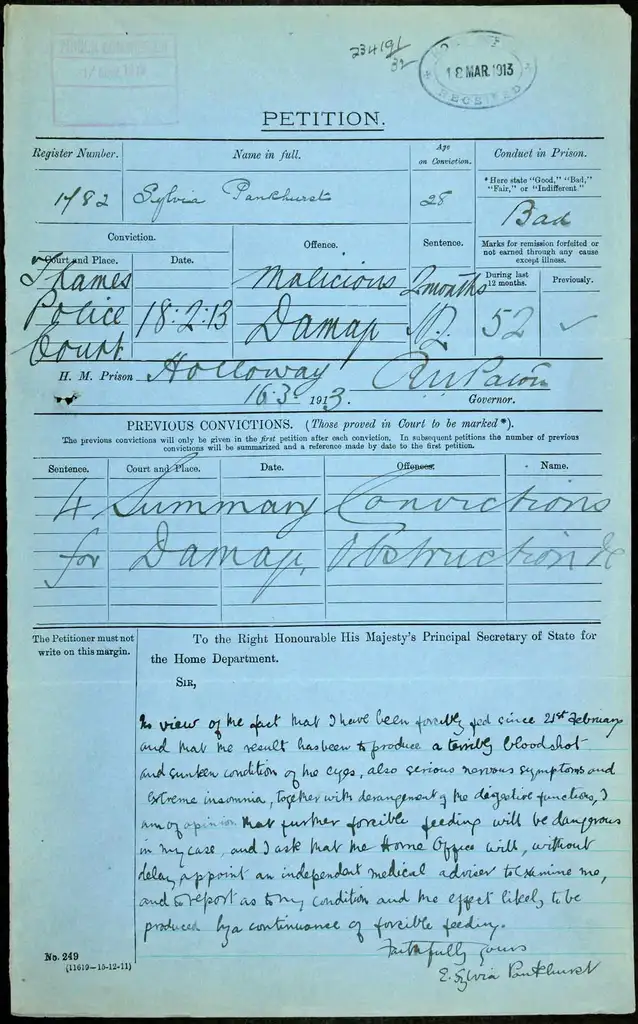 PRISON COMMISSION
17 MAR. 1913
234191/32
18 MAR. 1913
RECEIVED
PETITION.
Register Number. Name in full. Age on Conviction. Conduct in Prison.
1482 Sylvia Pankhurst 28
*Here state "Good," "Bad,"
"Fair," or "Indifferent."
Bad
Conviction. Offence. Sentence.
Marks for remission forfeited or
not earned through any cause
except illness.
Court and Place. Date.
During last
12 months. Previously.
Thames
Police
Court
18:2:13
Malicious
Damage
2 months
52 ✓
H. M. Prison Holloway
16.3. 1913.
Governor.
PREVIOUS CONVICTIONS. (Those proved in Court to be marked*).
The previous convictions will only be given in the first petition after each conviction. In subsequent petitions the number of previous
convictions will be summarized and a reference made by date to the first petition.
Sentence. Court and Place. Date. Offences. Name.
4 Summary Convictions
for Damage, Obstruction &c
The Petitioner must not
write on this margin.
To the Right Honourable His Majesty's Principal Secretary of State for
the Home Department.
SIR,
In view of the fact that I have been forcibly fed since 21st February
and that the result has been to produce a terribly bloodshot
and sunken condition of the eyes, also serious nervous symptoms and
extreme insomnia, together with derangement of the digestive functions, I
am of opinion that further forcible feeding will be dangerous
in my case, and I ask that the Home Office will, without
delay, appoint an independent medical adviser to examine me,
and to report as to my condition and the effect likely to be
produced by a continuance of forcible feeding.
Faithfully yours
E. Sylvia Pankhurst
No. 249
(11619—15-12-11)